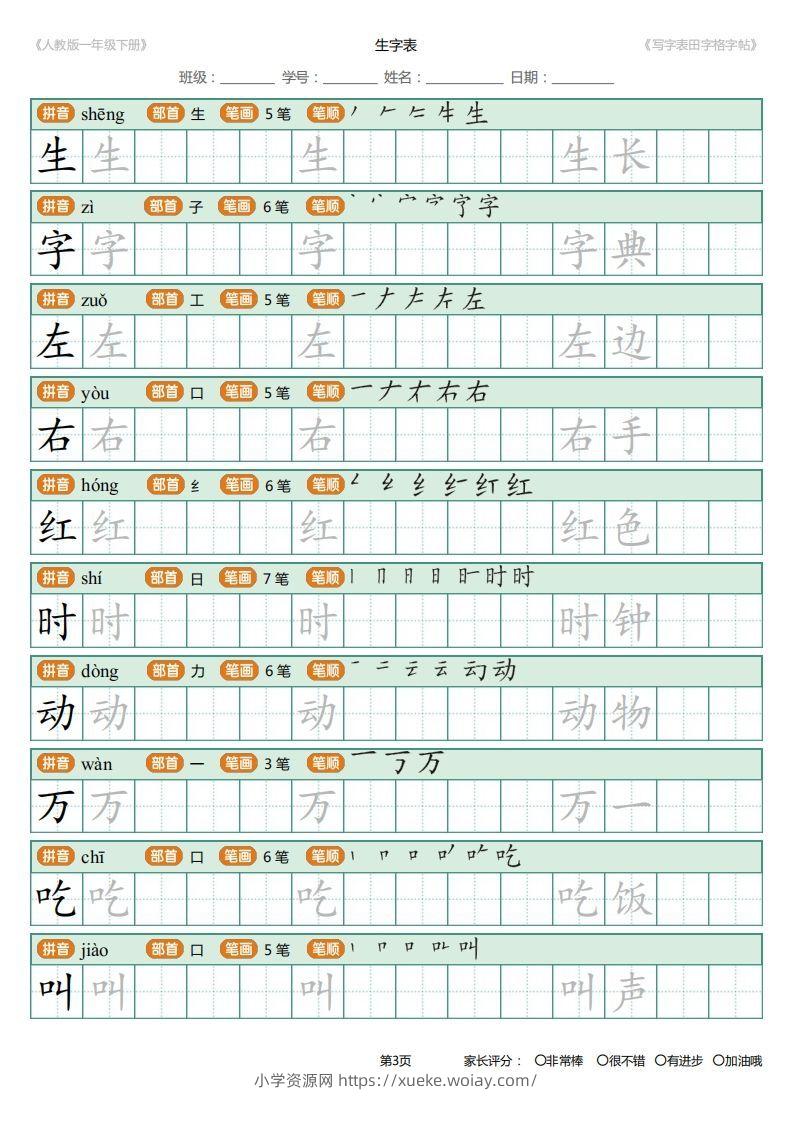 《人教版一年级下册》 生字表 《写字表田字格字帖》
班级：________ 学号：________ 姓名：____________ 日期：_________
拼音 shēng 部首 生 笔画 5 笔 笔顺 丿 𠂉 生
生 生 生 生 长
拼音 zì 部首 子 笔画 6 笔 笔顺 丶 宀 字
字 字 字 字 典
拼音 zuǒ 部首 工 笔画 5 笔 笔顺 一 𠂇 左
左 左 左 左 边
拼音 yòu 部首 口 笔画 5 笔 笔顺 一 𠂇 右 右
右 右 右 右 手
拼音 hóng 部首 纟 笔画 6 笔 笔顺 纟 红
红 红 红 红 色
拼音 shí 部首 日 笔画 7 笔 笔顺 丨 冂 日 时 时
时 时 时 时 钟
拼音 dòng 部首 力 笔画 6 笔 笔顺 一 二 云 云 动
动 动 动 动 物
拼音 wàn 部首 一 笔画 3 笔 笔顺 一 丆 万
万 万 万 万 一
拼音 chī 部首 口 笔画 6 笔 笔顺 丨 口 吃
吃 吃 吃 吃 饭
拼音 jiào 部首 口 笔画 5 笔 笔顺 丨 口 叫
叫 叫 叫 叫 声
第3页 家长评分： 〇非常棒 〇很不错 〇有进步 〇加油哦
小学资源网 https://xueke.woiay.com/